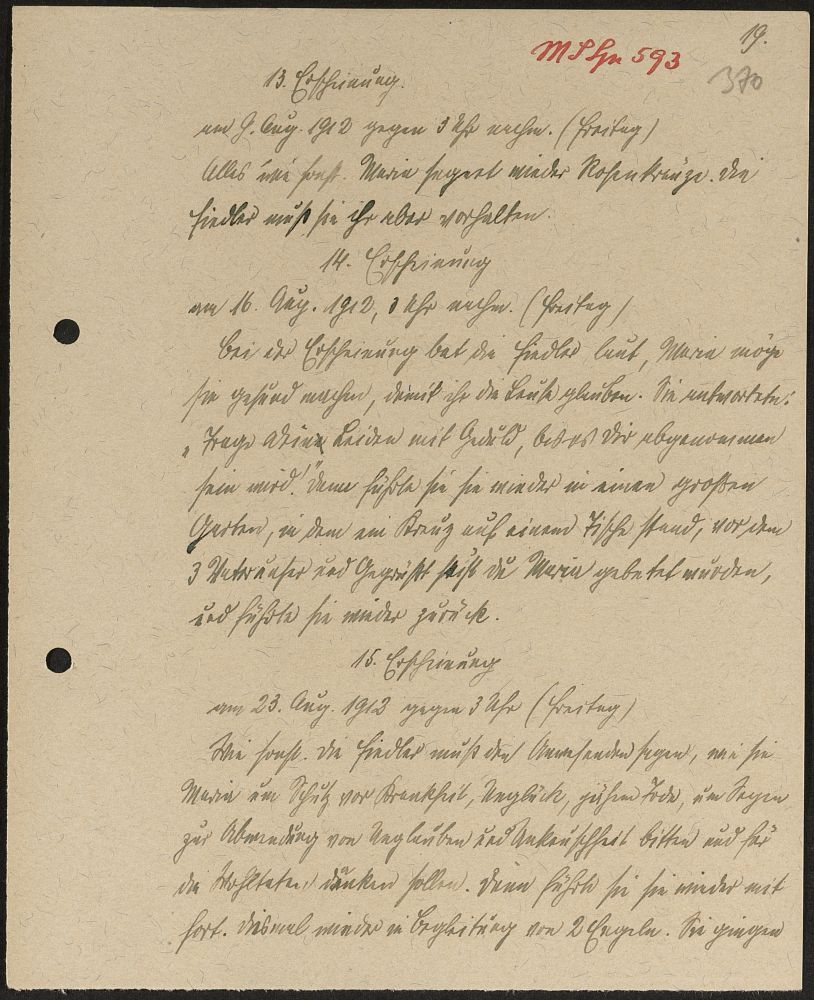 19.
MS Hn 593
370
13. Erscheinung.
am 9. Aug. 1912 gegen 3 Uhr nachm. (Freitag)
Alles wie sonst. Maria segnet wieder Rosenkränze. Die
Fiedler muß sie ihr aber vorhalten.
14. Erscheinung
am 16. Aug. 1912, 3 Uhr nachm. (Freitag)
Bei der Erscheinung bat die Fiedler laut, Maria möge
sie gesund machen, damit ihr die Leute glauben. Sie antwortete:
„Trage Deine Leiden mit Geduld, bis es Dir abgenommen
sein wird." Dann führte sie sie wieder in einen großen
Garten, in dem ein Kreuz auf einem Tische stand, vor dem
3 Vaterunser und Gegrüßt seist du Maria gebetet wurden,
und führte sie wieder zurück.
15. Erscheinung
am 23. Aug. 1912 gegen 3 Uhr (Freitag)
Wie sonst. Die Fiedler muß den Anwesenden sagen, wie sie
Maria um Schutz vor Krankheit, Unglück, jähem Tode, um Segen
zur Abwendung von Unglauben und Unkeuschheit bitten und für
die Wohltaten danken sollen. Dann führte sie sie wieder mit
fort. Diesmal wieder in Begleitung von 2 Engeln. Sie gingen